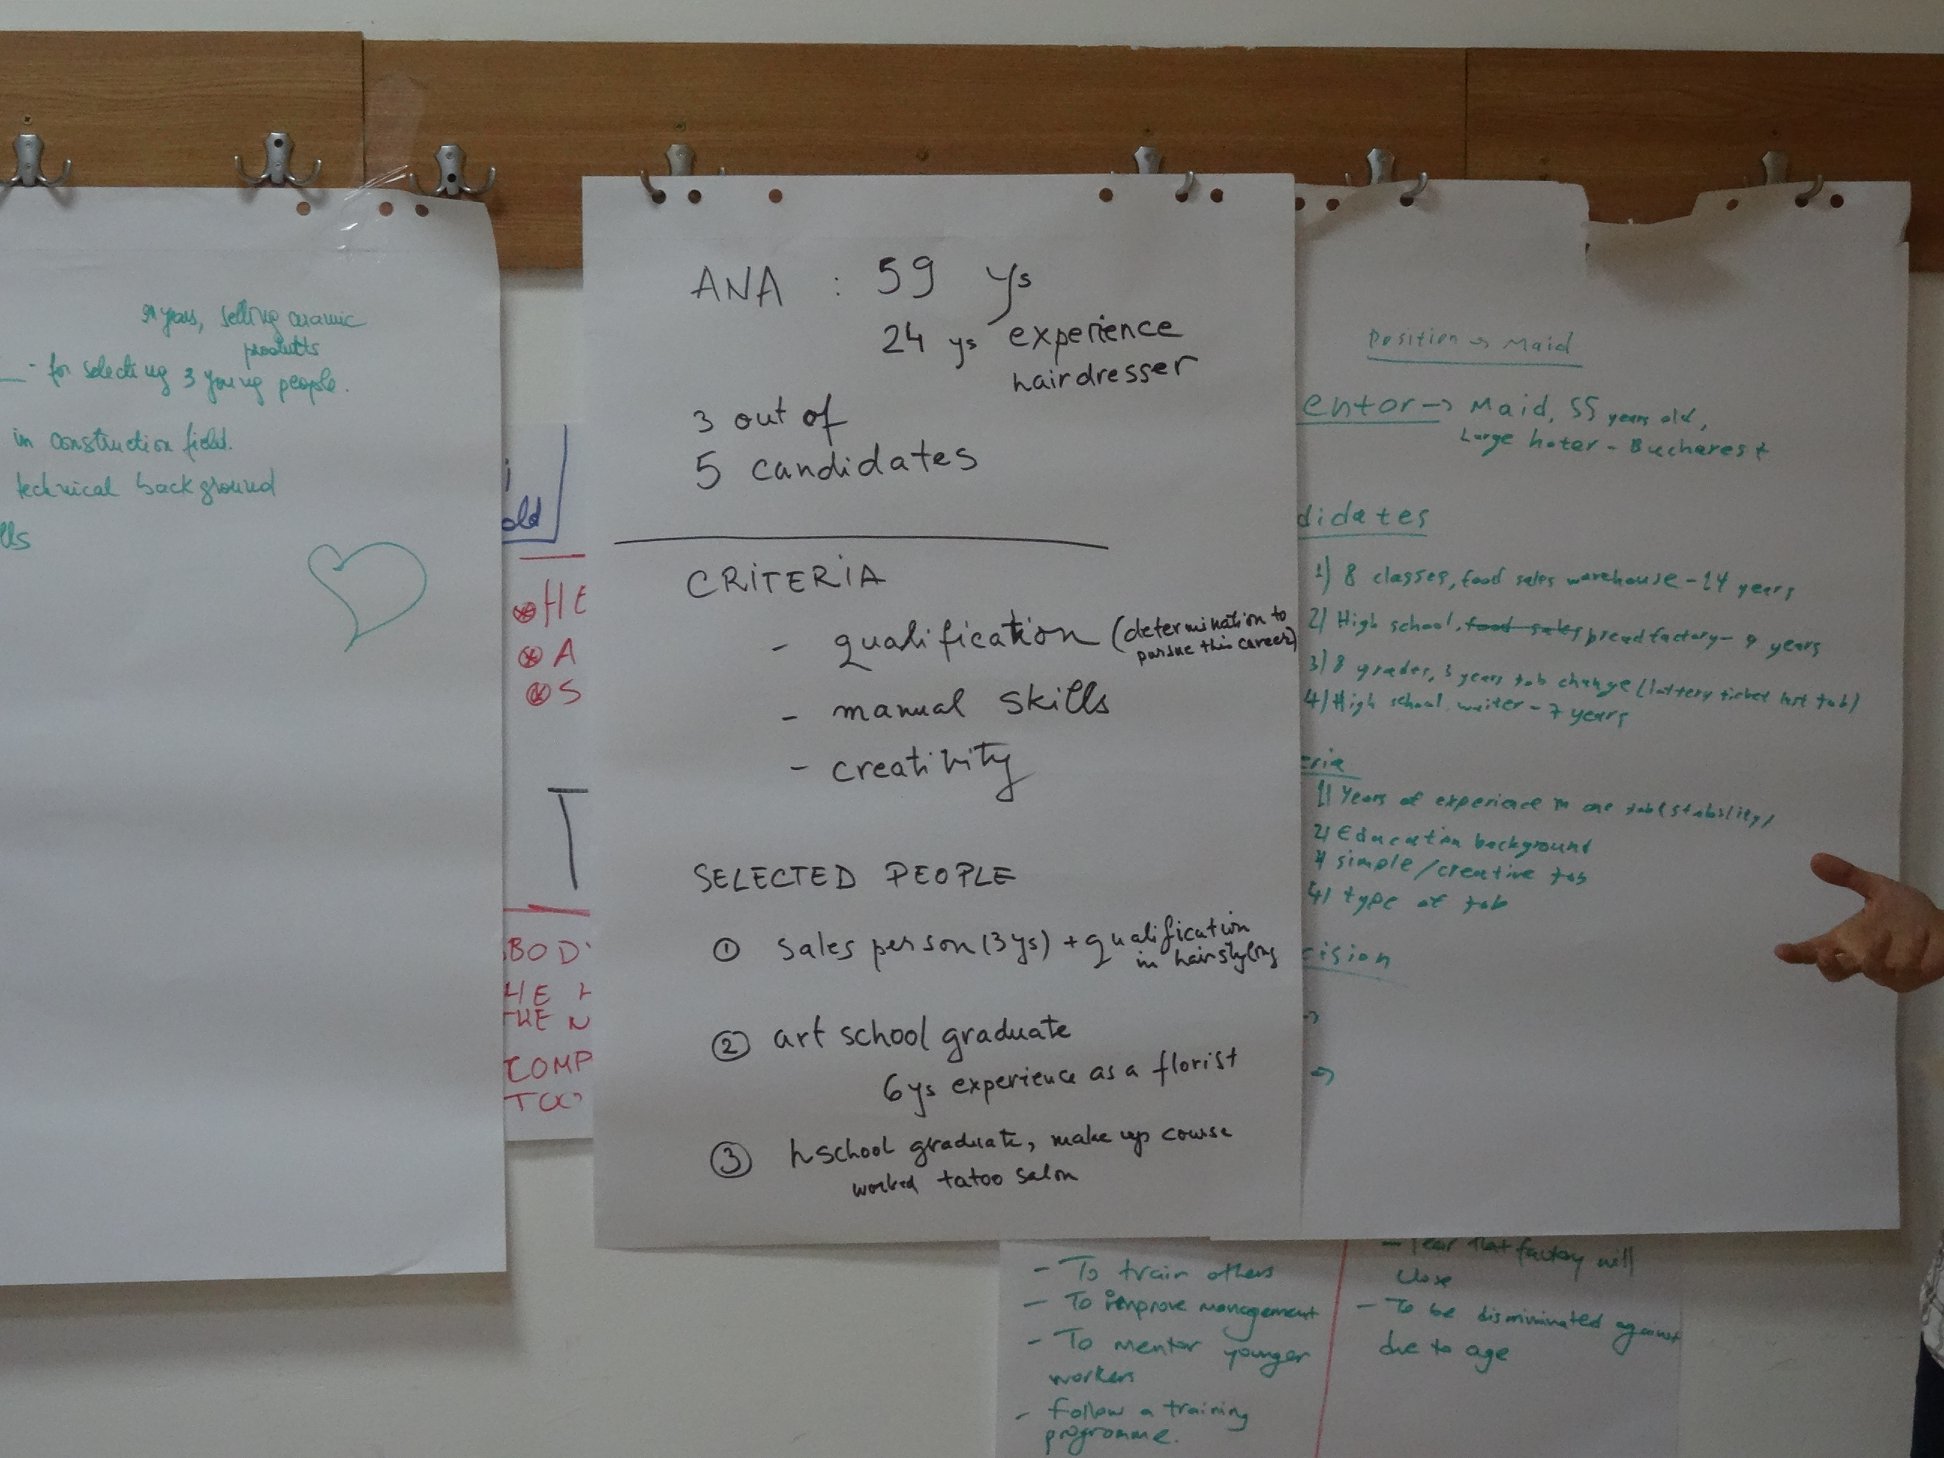 years, selling ceramic
products
- for selecting 3 young people.
in construction field.
technical background
lls
old
HE
A
S
T
BOD
HE
THE N
COMP
TOO
ANA : 59 ys
24 ys experience
hairdresser
3 out of
5 candidates
CRITERIA
- qualification (determination to
pursue this career)
- manual skills
- creativity
SELECTED PEOPLE
① sales person (3ys) + qualification
in hairstyling
② art school graduate
6ys experience as a florist
③ hschool graduate, make up course
worked tatoo salon
Position → Maid
entor → Maid, 55 years old,
Large hotel - Bucharest
didates
1) 8 classes, food sales warehouse - 14 years
2) High school, food sales bread factory - 9 years
3) 8 grades, 3 years job change (lottery ticket last job)
4) High school, waiter - 7 years
eria
1) Years of experience in one job (stability)
2) Education background
simple/creative job
4) type of job
cision
→
→
- To train others
- To improve management
- To mentor younger
workers
- Follow a training
programme.
- Fear that factory will
close
- To be discriminated against
due to age